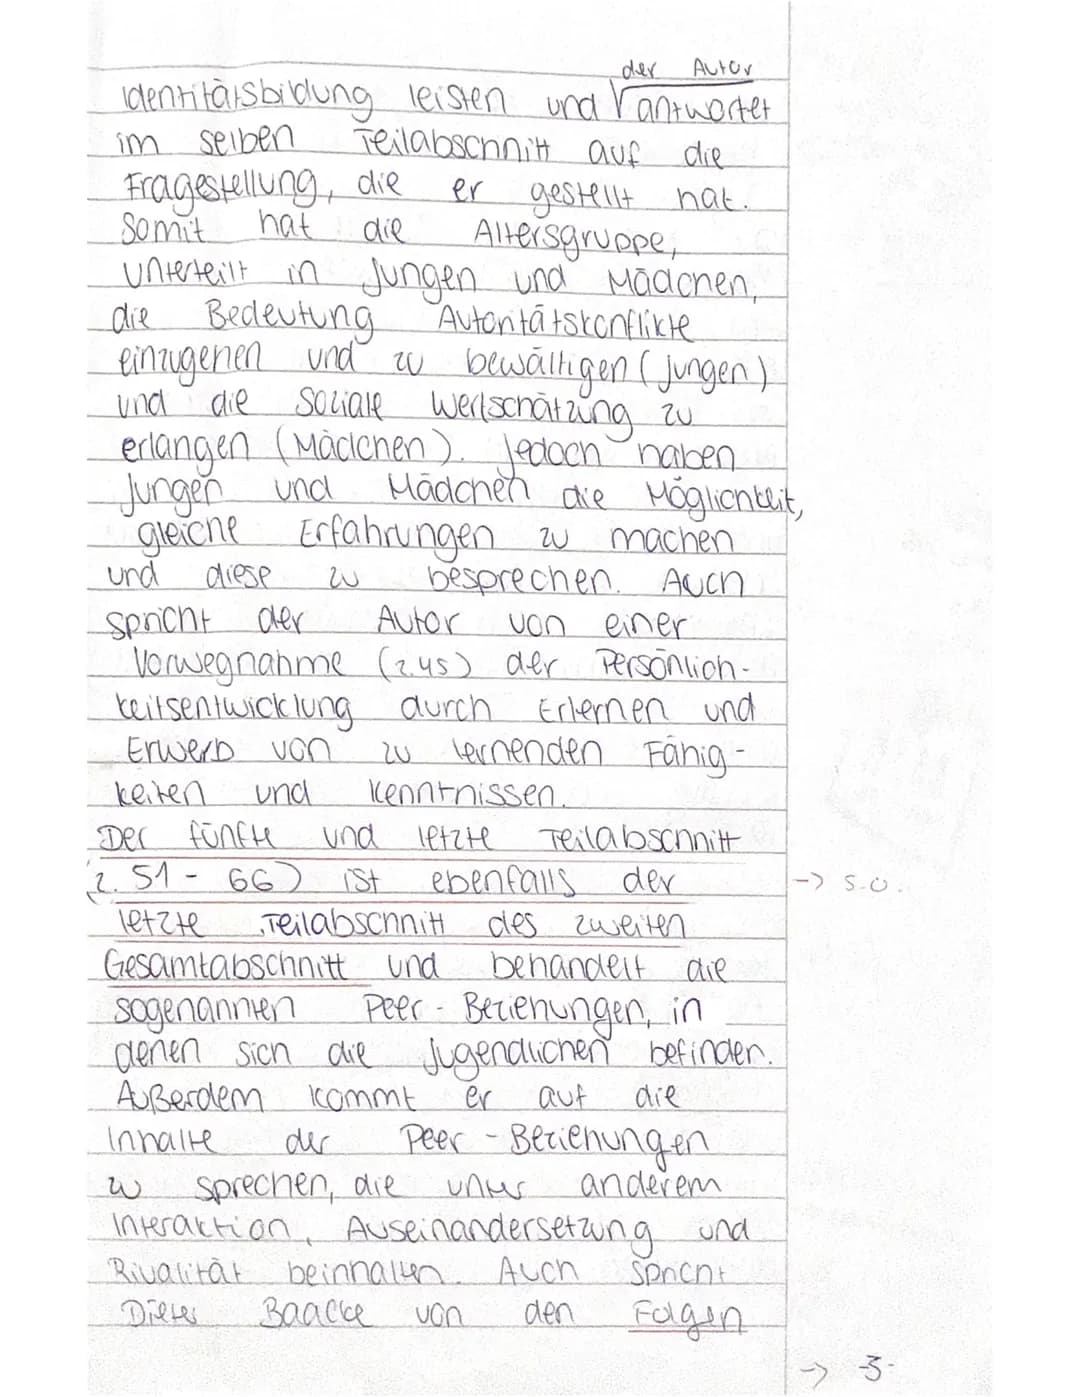 der Autor
identitätsbildung leisten und √ antwortet
im selben Teilabschnitt auf die
Fragestellung, die er gestellt hat.
Somit hat die Altersgruppe,
unterteilt in Jungen und Mädchen,
die Bedeutung Autoritätskonflikte
einzugehen und zu bewältigen (Jungen)
und die soziale Wertschätzung zu
erlangen (Mädchen). Jedoch haben
Jungen und Mädchen die Möglichkeit,
gleiche Erfahrungen zu machen
und diese zu besprechen. Auch
spricht der Autor von einer
Vorwegnahme (Z.45) der Persönlich-
keitsentwicklung durch Erlernen und
Erwerb von zu lernenden Fähig-
keiten und Kenntnissen.
Der fünfte und letzte Teilabschnitt
(Z. 51 - 66) ist ebenfalls der
letzte Teilabschnitt des zweiten
Gesamtabschnitt und behandelt die
sogenannten Peer-Beziehungen, in
denen sich die Jugendlichen befinden.
Außerdem kommt er auf die
Inhalte der Peer-Beziehungen
zu sprechen, die unter anderem
Interaktion, Auseinandersetzung und
Rivalität beinhalten. Auch spricht
Dieter Baacke von den Folgen
-> s.o.
-> -3-